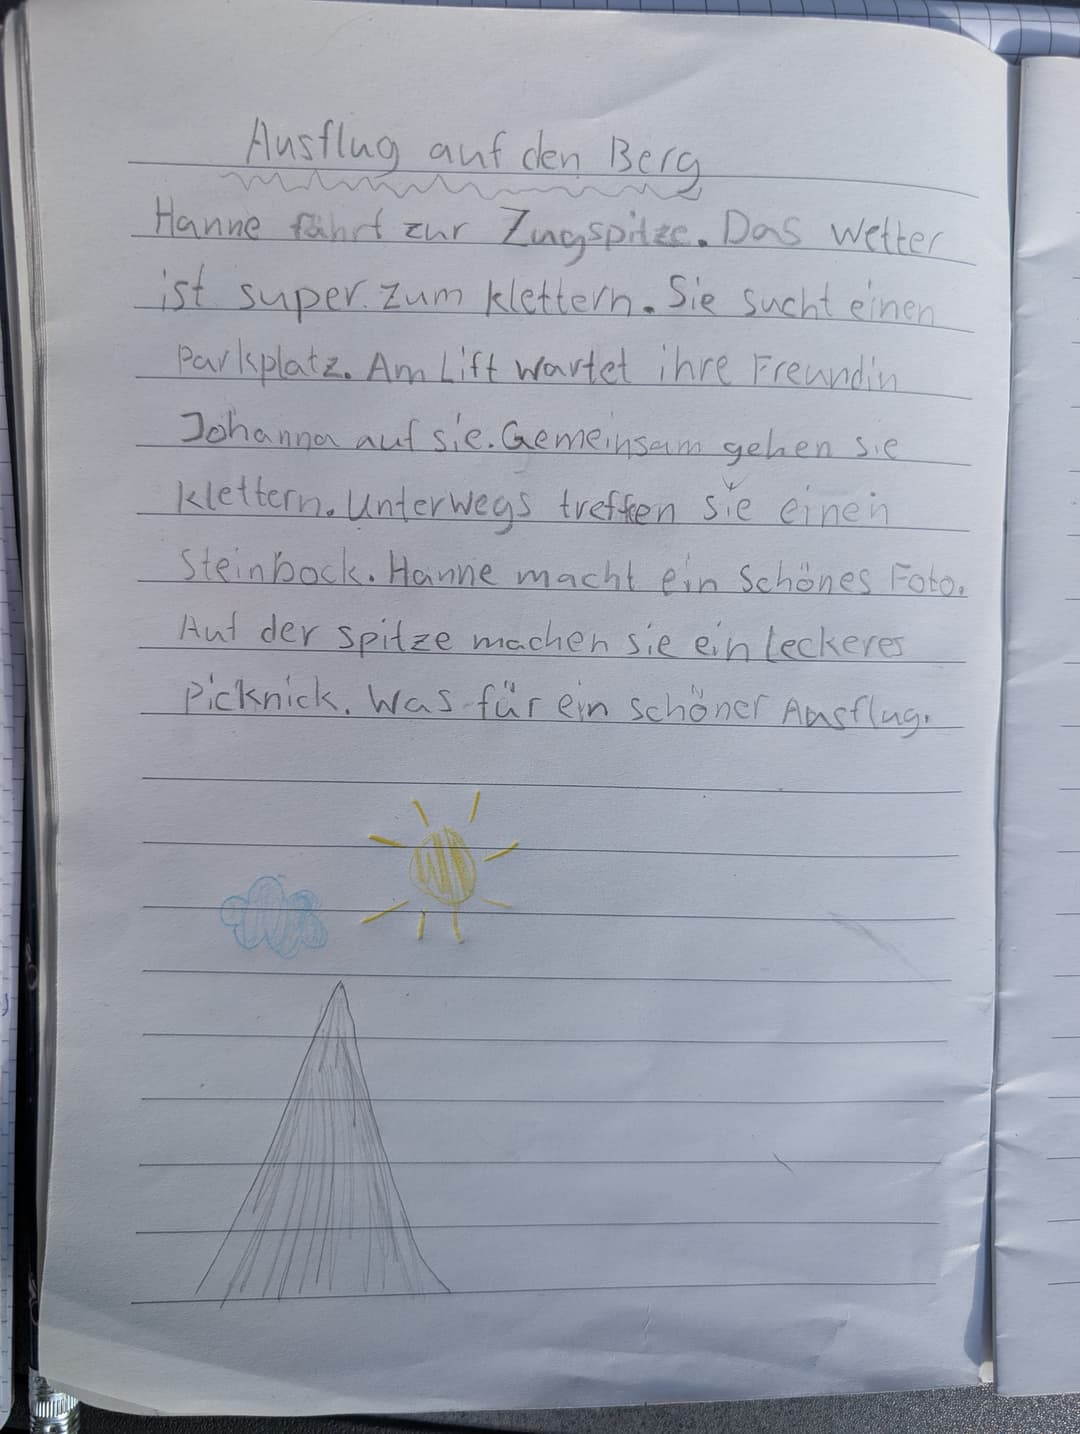 Ausflug auf den Berg
Hanne fährt zur Zugspitze. Das Wetter
ist super zum klettern. Sie sucht einen
Parkplatz. Am Lift wartet ihre Freundin
Johanna auf sie. Gemeinsam gehen sie
klettern. Unterwegs treffen sie einen
Steinbock. Hanne macht ein schönes Foto.
Auf der spitze machen sie ein leckeres
Picknick. Was für ein schöner Ausflug.